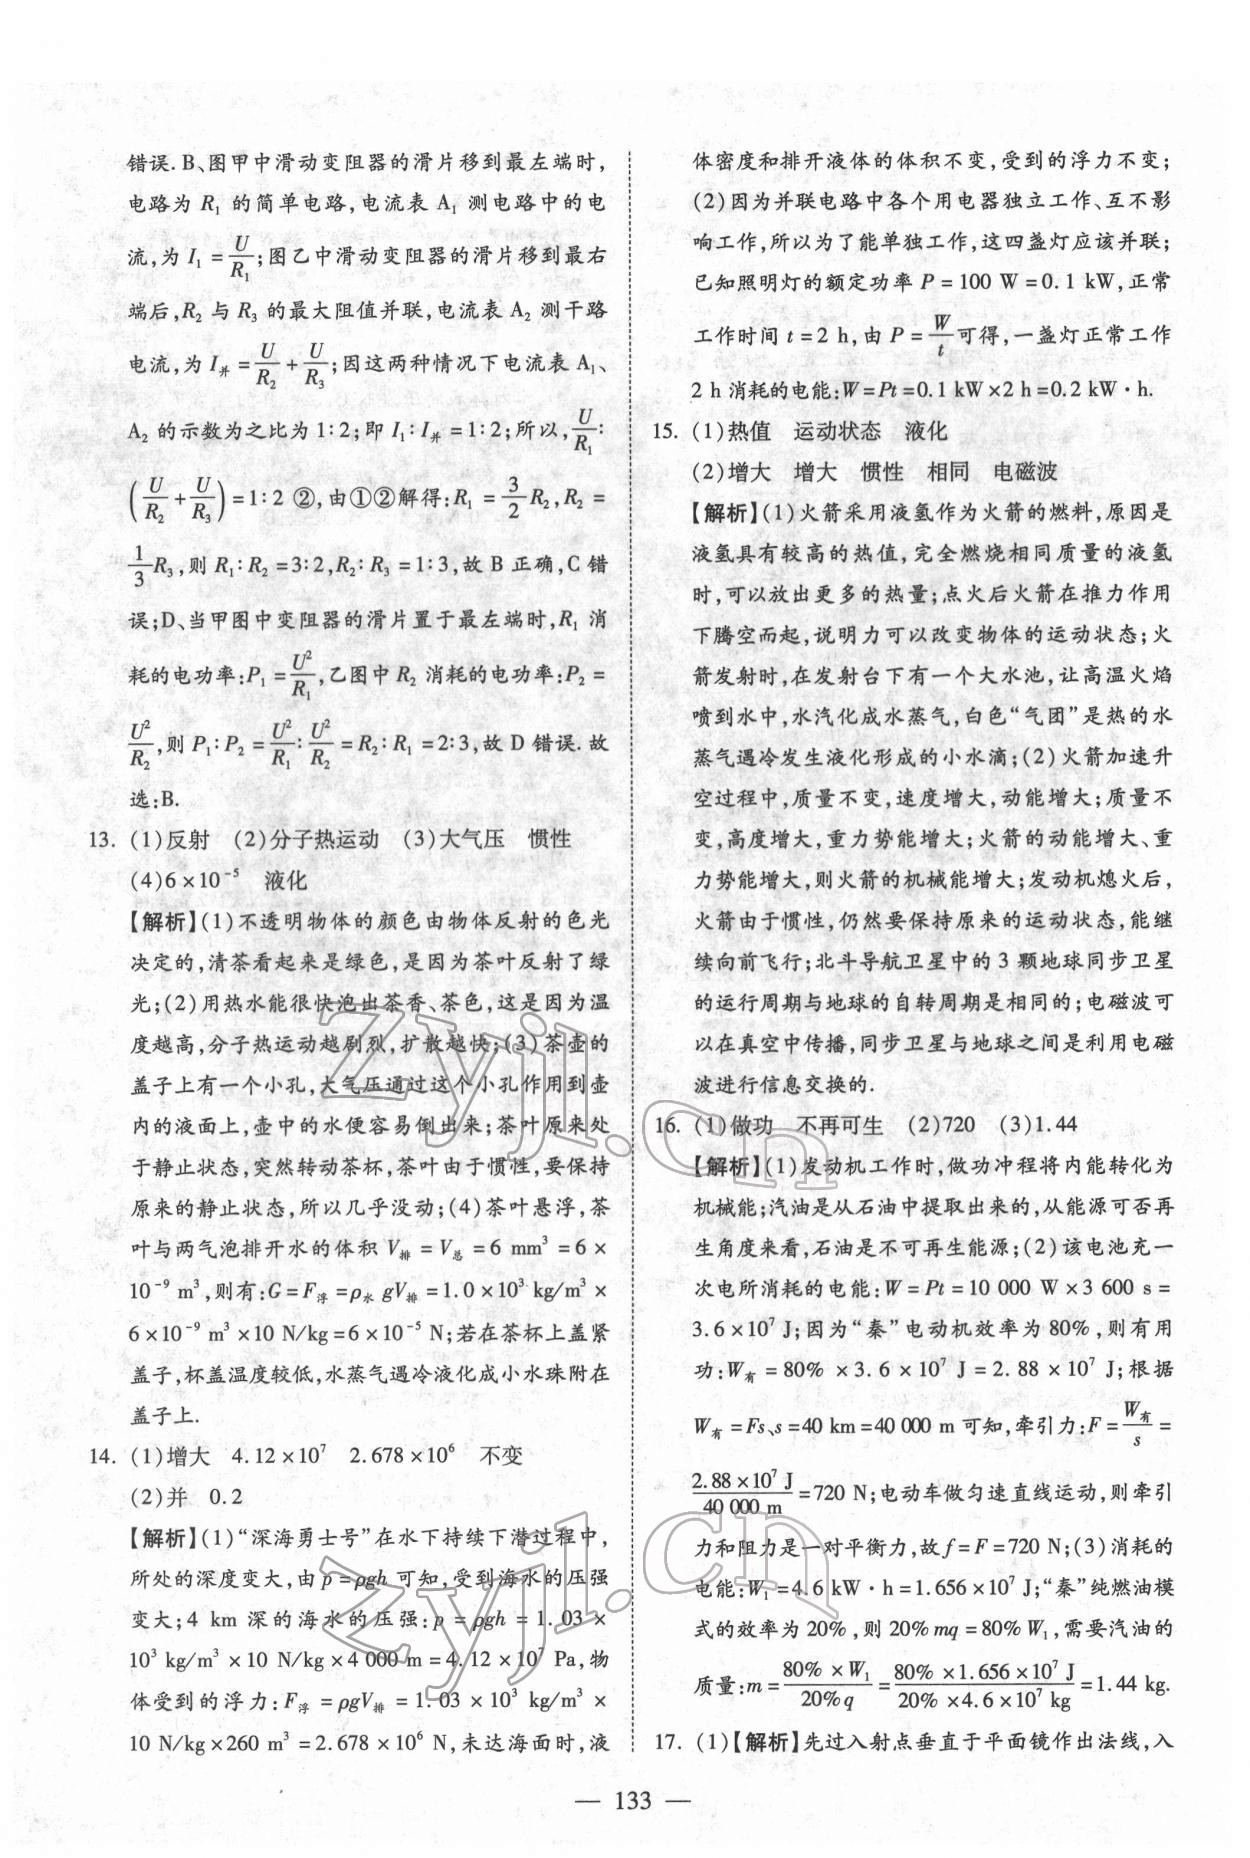 错误.B、图甲中滑动变阻器的滑片移到最左端时,
电路为 R₁ 的简单电路,电流表 A₁ 测电路中的电
流,为 I₁ = U/R₁;图乙中滑动变阻器的滑片移到最右
端后,R₂ 与 R₃ 的最大阻值并联,电流表 A₂ 测干路
电流,为 I并 = U/R₂ + U/R₃;因这两种情况下电流表 A₁、
A₂ 的示数为之比为 1∶2;即 I₁∶I并 = 1∶2;所以,U/R₁∶
(U/R₂ + U/R₃) = 1∶2 ②,由①②解得:R₁ = 3/2 R₂,R₂ =
1/3 R₃,则 R₁∶R₂ = 3∶2,R₂∶R₃ = 1∶3,故 B 正确,C 错
误;D、当甲图中变阻器的滑片置于最左端时,R₁ 消
耗的电功率:P₁ = U²/R₁,乙图中 R₂ 消耗的电功率:P₂ =
U²/R₂,则 P₁∶P₂ = U²/R₁∶U²/R₂ = R₂∶R₁ = 2∶3,故 D 错误.故
选:B.
13. (1)反射 (2)分子热运动 (3)大气压 惯性
(4)6×10⁻⁵ 液化
【解析】(1)不透明物体的颜色由物体反射的色光
决定的,清茶看起来是绿色,是因为茶叶反射了绿
光;(2)用热水能很快泡出茶香、茶色,这是因为温
度越高,分子热运动越剧烈,扩散越快;(3)茶壶的
盖子上有一个小孔,大气压通过这个小孔作用到壶
内的液面上,壶中的水便容易倒出来;茶叶原来处
于静止状态,突然转动茶杯,茶叶由于惯性,要保持
原来的静止状态,所以几乎没动;(4)茶叶悬浮,茶
叶与两气泡排开水的体积 V排 = V总 = 6 mm³ = 6×
10⁻⁹ m³,则有:G = F浮 = ρ水 gV排 = 1.0×10³ kg/m³ ×
6×10⁻⁹ m³×10 N/kg = 6×10⁻⁵ N;若在茶杯上盖紧
盖子,杯盖温度较低,水蒸气遇冷液化成小水珠附在
盖子上.
14. (1)增大 4.12×10⁷ 2.678×10⁶ 不变
(2)并 0.2
【解析】(1)“深海勇士号”在水下持续下潜过程中,
所处的深度变大,由 p = ρgh 可知,受到海水的压强
变大;4 km 深的海水的压强:p = ρgh = 1.03 ×
10³ kg/m³ × 10 N/kg × 4 000 m = 4.12 × 10⁷ Pa,物
体受到的浮力:F浮 = ρgV排 = 1.03×10³ kg/m³ ×
10 N/kg×260 m³ = 2.678×10⁶ N,未达海面时,液
体密度和排开液体的体积不变,受到的浮力不变;
(2)因为并联电路中各个用电器独立工作、互不影
响工作,所以为了能单独工作,这四盏灯应该并联;
已知照明灯的额定功率 P = 100 W = 0.1 kW,正常
工作时间 t = 2 h,由 P = W/t 可得,一盏灯正常工作
2 h 消耗的电能:W = Pt = 0.1 kW×2 h = 0.2 kW·h.
15. (1)热值 运动状态 液化
(2)增大 增大 惯性 相同 电磁波
【解析】(1)火箭采用液氢作为火箭的燃料,原因是
液氢具有较高的热值,完全燃烧相同质量的液氢
时,可以放出更多的热量;点火后火箭在推力作用
下腾空而起,说明力可以改变物体的运动状态;火
箭发射时,在发射台下有一个大水池,让高温火焰
喷到水中,水汽化成水蒸气,白色“气团”是热的水
蒸气遇冷发生液化形成的小水滴;(2)火箭加速升
空过程中,质量不变,速度增大,动能增大;质量不
变,高度增大,重力势能增大;火箭的动能增大、重
力势能增大,则火箭的机械能增大;发动机熄火后,
火箭由于惯性,仍然要保持原来的运动状态,能继
续向前飞行;北斗导航卫星中的 3 颗地球同步卫星
的运行周期与地球的自转周期是相同的;电磁波可
以在真空中传播,同步卫星与地球之间是利用电磁
波进行信息交换的.
16. (1)做功 不再可生 (2)720 (3)1.44
【解析】(1)发动机工作时,做功冲程将内能转化为
机械能;汽油是从石油中提取出来的,从能源可否再
生角度来看,石油是不可再生能源;(2)该电池充一
次电所消耗的电能:W = Pt = 10 000 W × 3 600 s =
3.6×10⁷ J;因为“秦”电动机效率为 80%,则有用
功:W有 = 80% × 3.6 × 10⁷ J = 2.88 × 10⁷ J;根据
W有 = Fs、s = 40 km = 40 000 m 可知,牵引力:F = W有/s =
2.88×10⁷ J/40 000 m = 720 N;电动车做匀速直线运动,则牵引
力和阻力是一对平衡力,故 f = F = 720 N;(3)消耗的
电能:W₁ = 4.6 kW·h = 1.656×10⁷ J;“秦”纯燃油模
式的效率为 20%,则 20%mq = 80%W₁,需要汽油的
质量:m = 80%×W₁/20%q = 80%×1.656×10⁷ J/20%×4.6×10⁷ kg = 1.44 kg.
17. (1)【解析】先过入射点垂直于平面镜作出法线,入
— 133 —
zyjl.cn
zyjl.cn